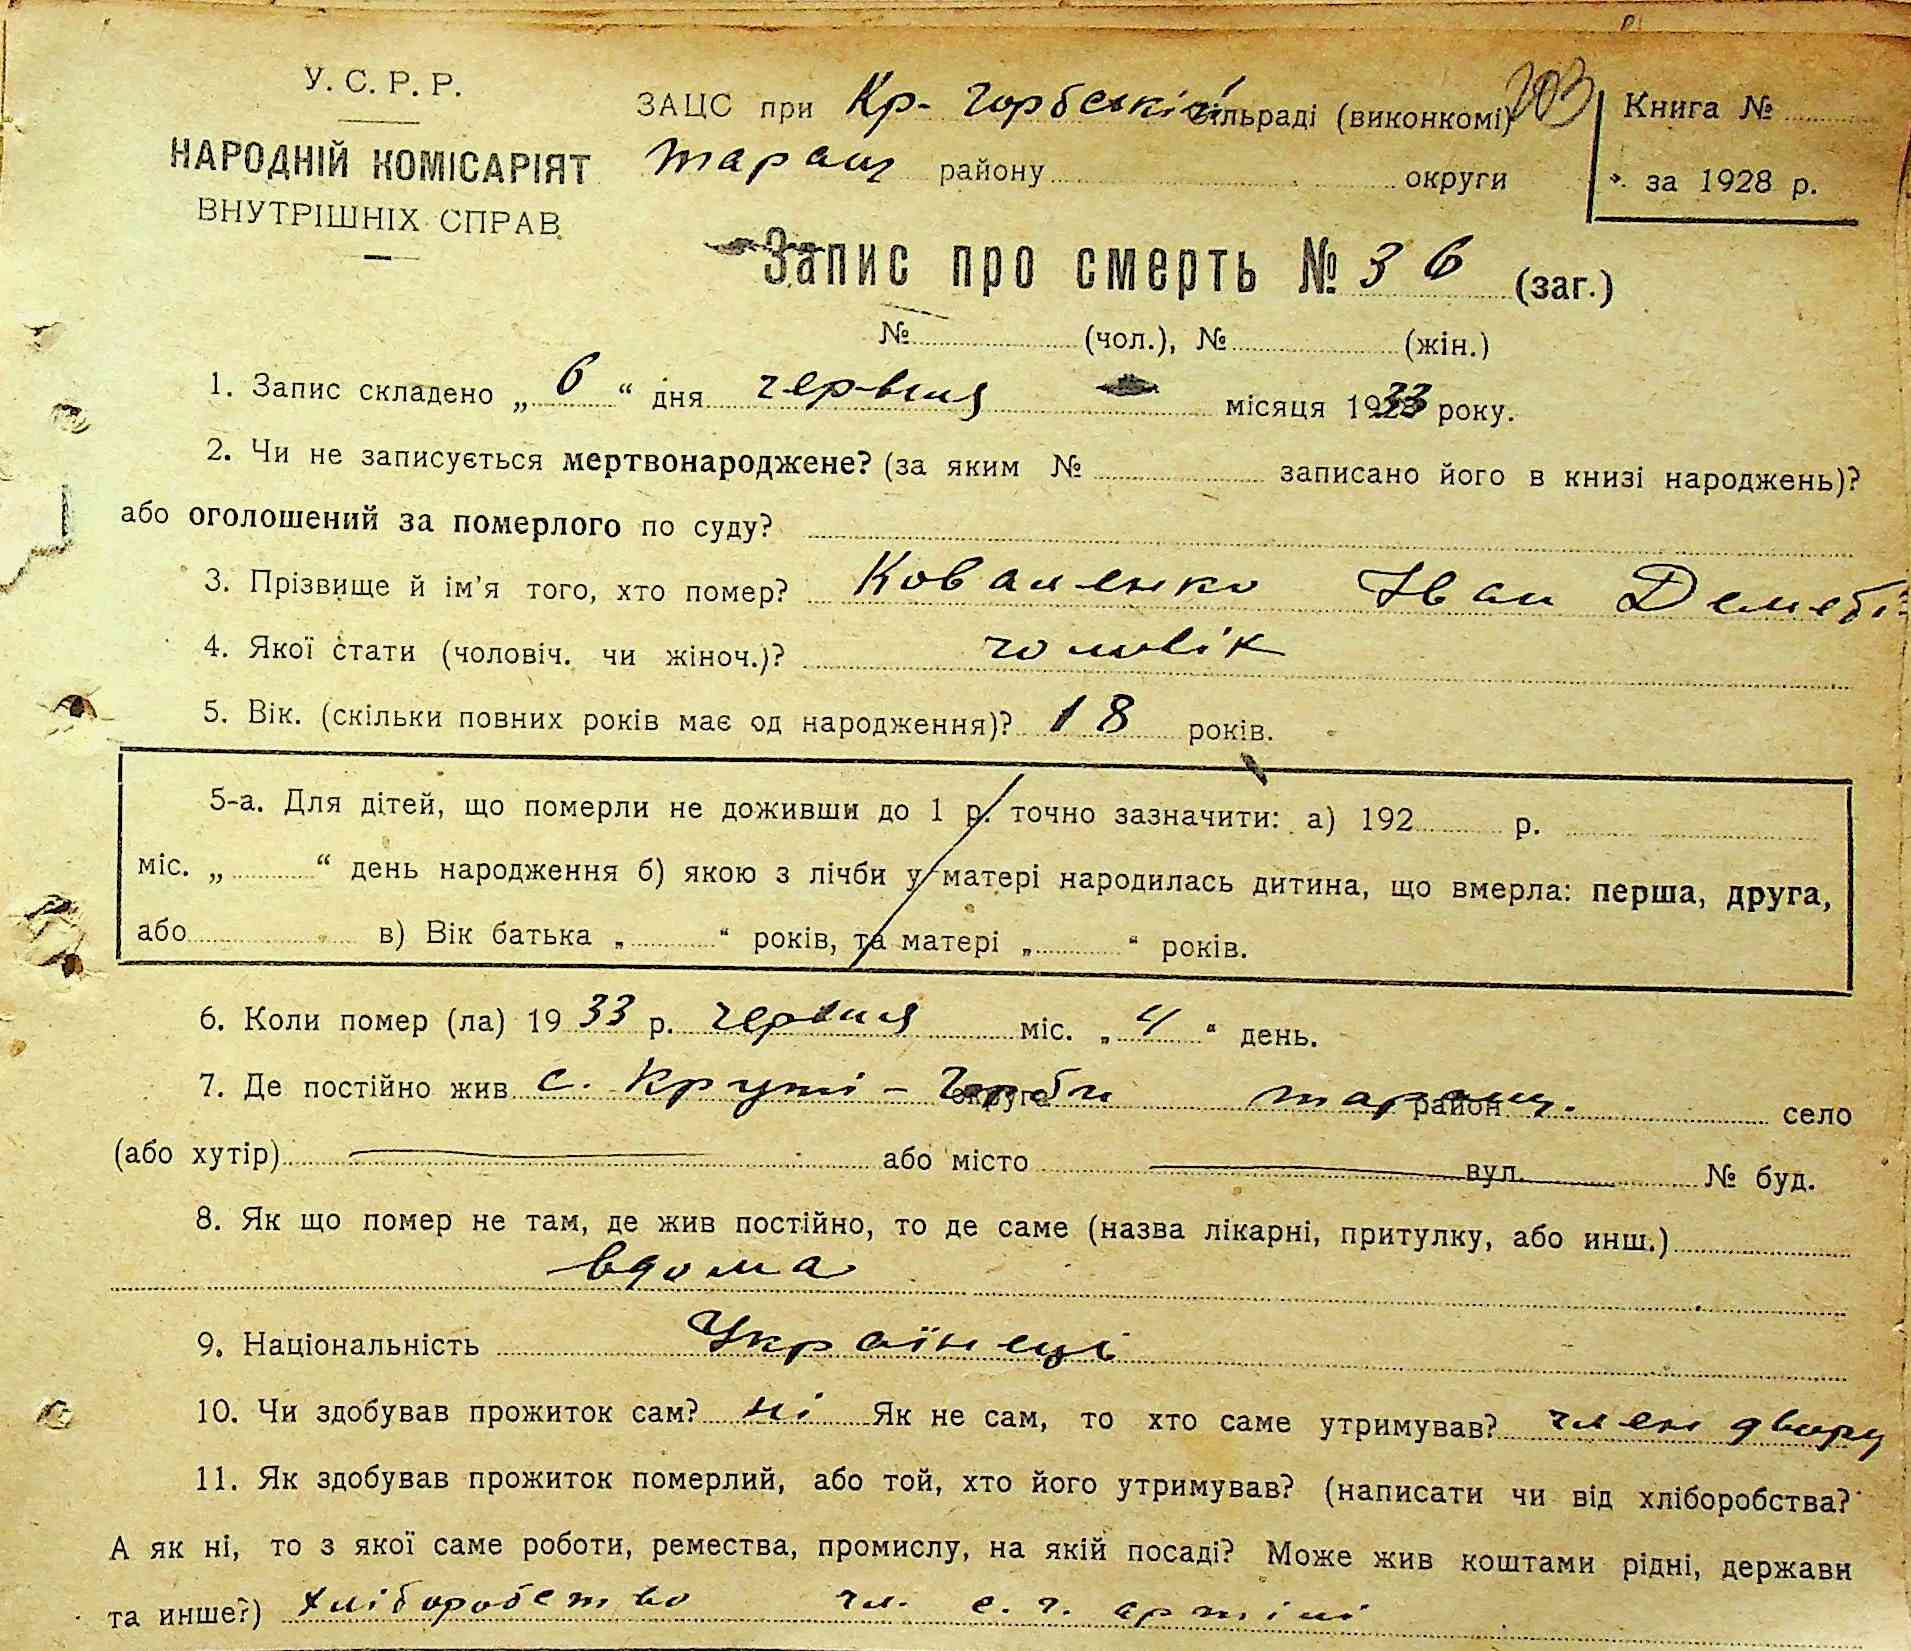 У. С. Р. Р.
НАРОДНІЙ КОМІСАРІЯТ
ВНУТРІШНІХ СПРАВ
ЗАЦС при Кр- Горбській сільраді (виконкомі) 203
Таращ району округи
Книга №
за 1928 р.
Запис про смерть № 36 (заг.)
№ (чол.), № (жін.)
1. Запис складено „ 6 “ дня червня місяця 1933 року.
2. Чи не записується мертвонароджене? (за яким № записано його в книзі народжень)?
або оголошений за померлого по суду?
3. Прізвище й ім’я того, хто помер? Коваленко Іван
4. Якої стати (чоловіч. чи жіноч.)? чоловік
5. Вік. (скільки повних років має од народження)? 18 років.
5-а. Для дітей, що померли не доживши до 1 р. точно зазначити: а) 192 р.
міс. „ “ день народження б) якою з лічби у матері народилась дитина, що вмерла: перша, друга,
або в) Вік батька „ “ років, та матері „ “ років.
6. Коли помер (ла) 1933 р. червня міс. „ 4 “ день.
7. Де постійно жив с. Круті - Горби округа таращ. район село
(або хутір) або місто вул. № буд.
8. Як що помер не там, де жив постійно, то де саме (назва лікарні, притулку, або инш.)
вдома
9. Національність Українець
10. Чи здобував прожиток сам? ні Як не сам, то хто саме утримував? член двору
11. Як здобував прожиток померлий, або той, хто його утримував? (написати чи від хліборобства?
А як ні, то з якої саме роботи, ремества, промислу, на якій посаді? Може жив коштами рідні, держави
та инше?) хліборобство чл. с. г. артілі